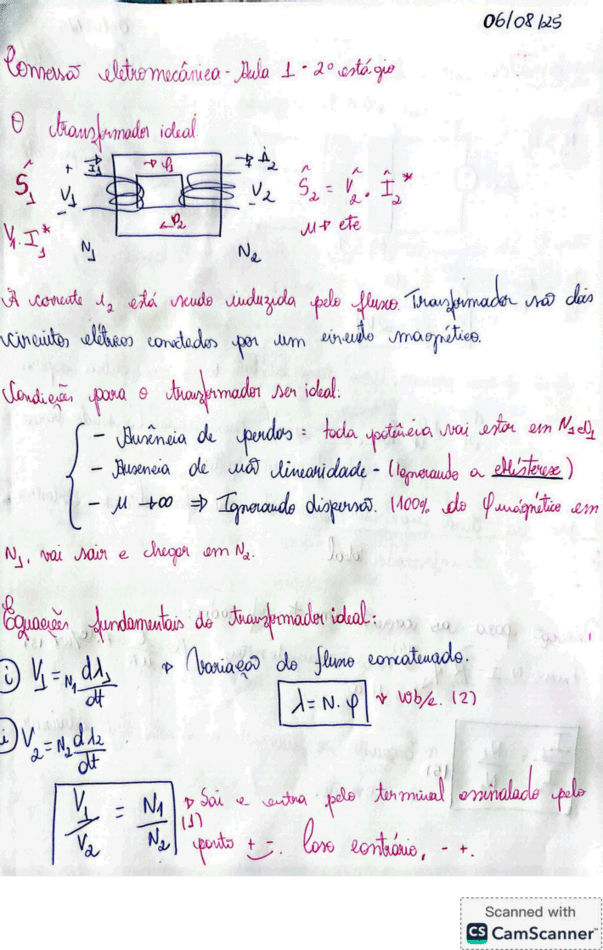 06/08/25
Conversão eletromecânica - Aula 1 - 2º estágio
O transformador ideal
Ŝ1 + I1 → φ1 → i2
V1 V2 Ŝ2 = V̂2 . Î2*
- ← φ2 -
V1.I1* N1 N2 μ → cte
A corrente i2 está sendo induzida pelo fluxo. Transformador são dois
circuitos elétricos conectados por um circuito magnético.
Condições para o transformador ser ideal:
- Ausência de perdas = toda potência vai estar em N1
- Ausencia de não linearidade - (Ignorando a Histerese)
- μ → ∞ ⇒ Ignorando dispersão. (100% do φmagnético em
N1, vai sair e chegar em N2.
Equações fundamentais do transformador ideal:
i) V1 = N1 dλ1/dt → Variação do fluxo concatenado.
λ = N. φ → Wb/e. (2)
i) V2 = N2 dλ2/dt
V1/V2 = N1/N2 (1) → Sai e entra pelo terminal assinalado pelo
ponto + -. Caso contrário, - +.
Scanned with
CS CamScanner™